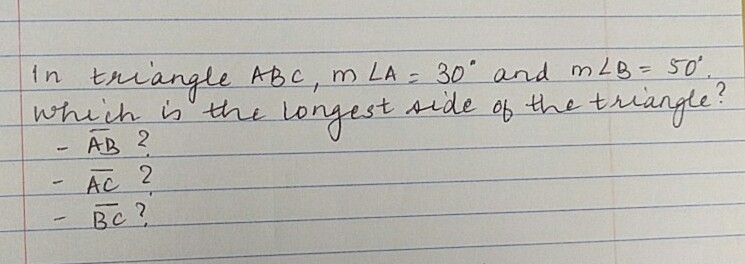 In triangle ABC, m∠A = 30° and m∠B = 50°.
Which is the longest side of the triangle?
- A̅B̅ ?
- A̅C̅ ?
- B̅C̅ ?